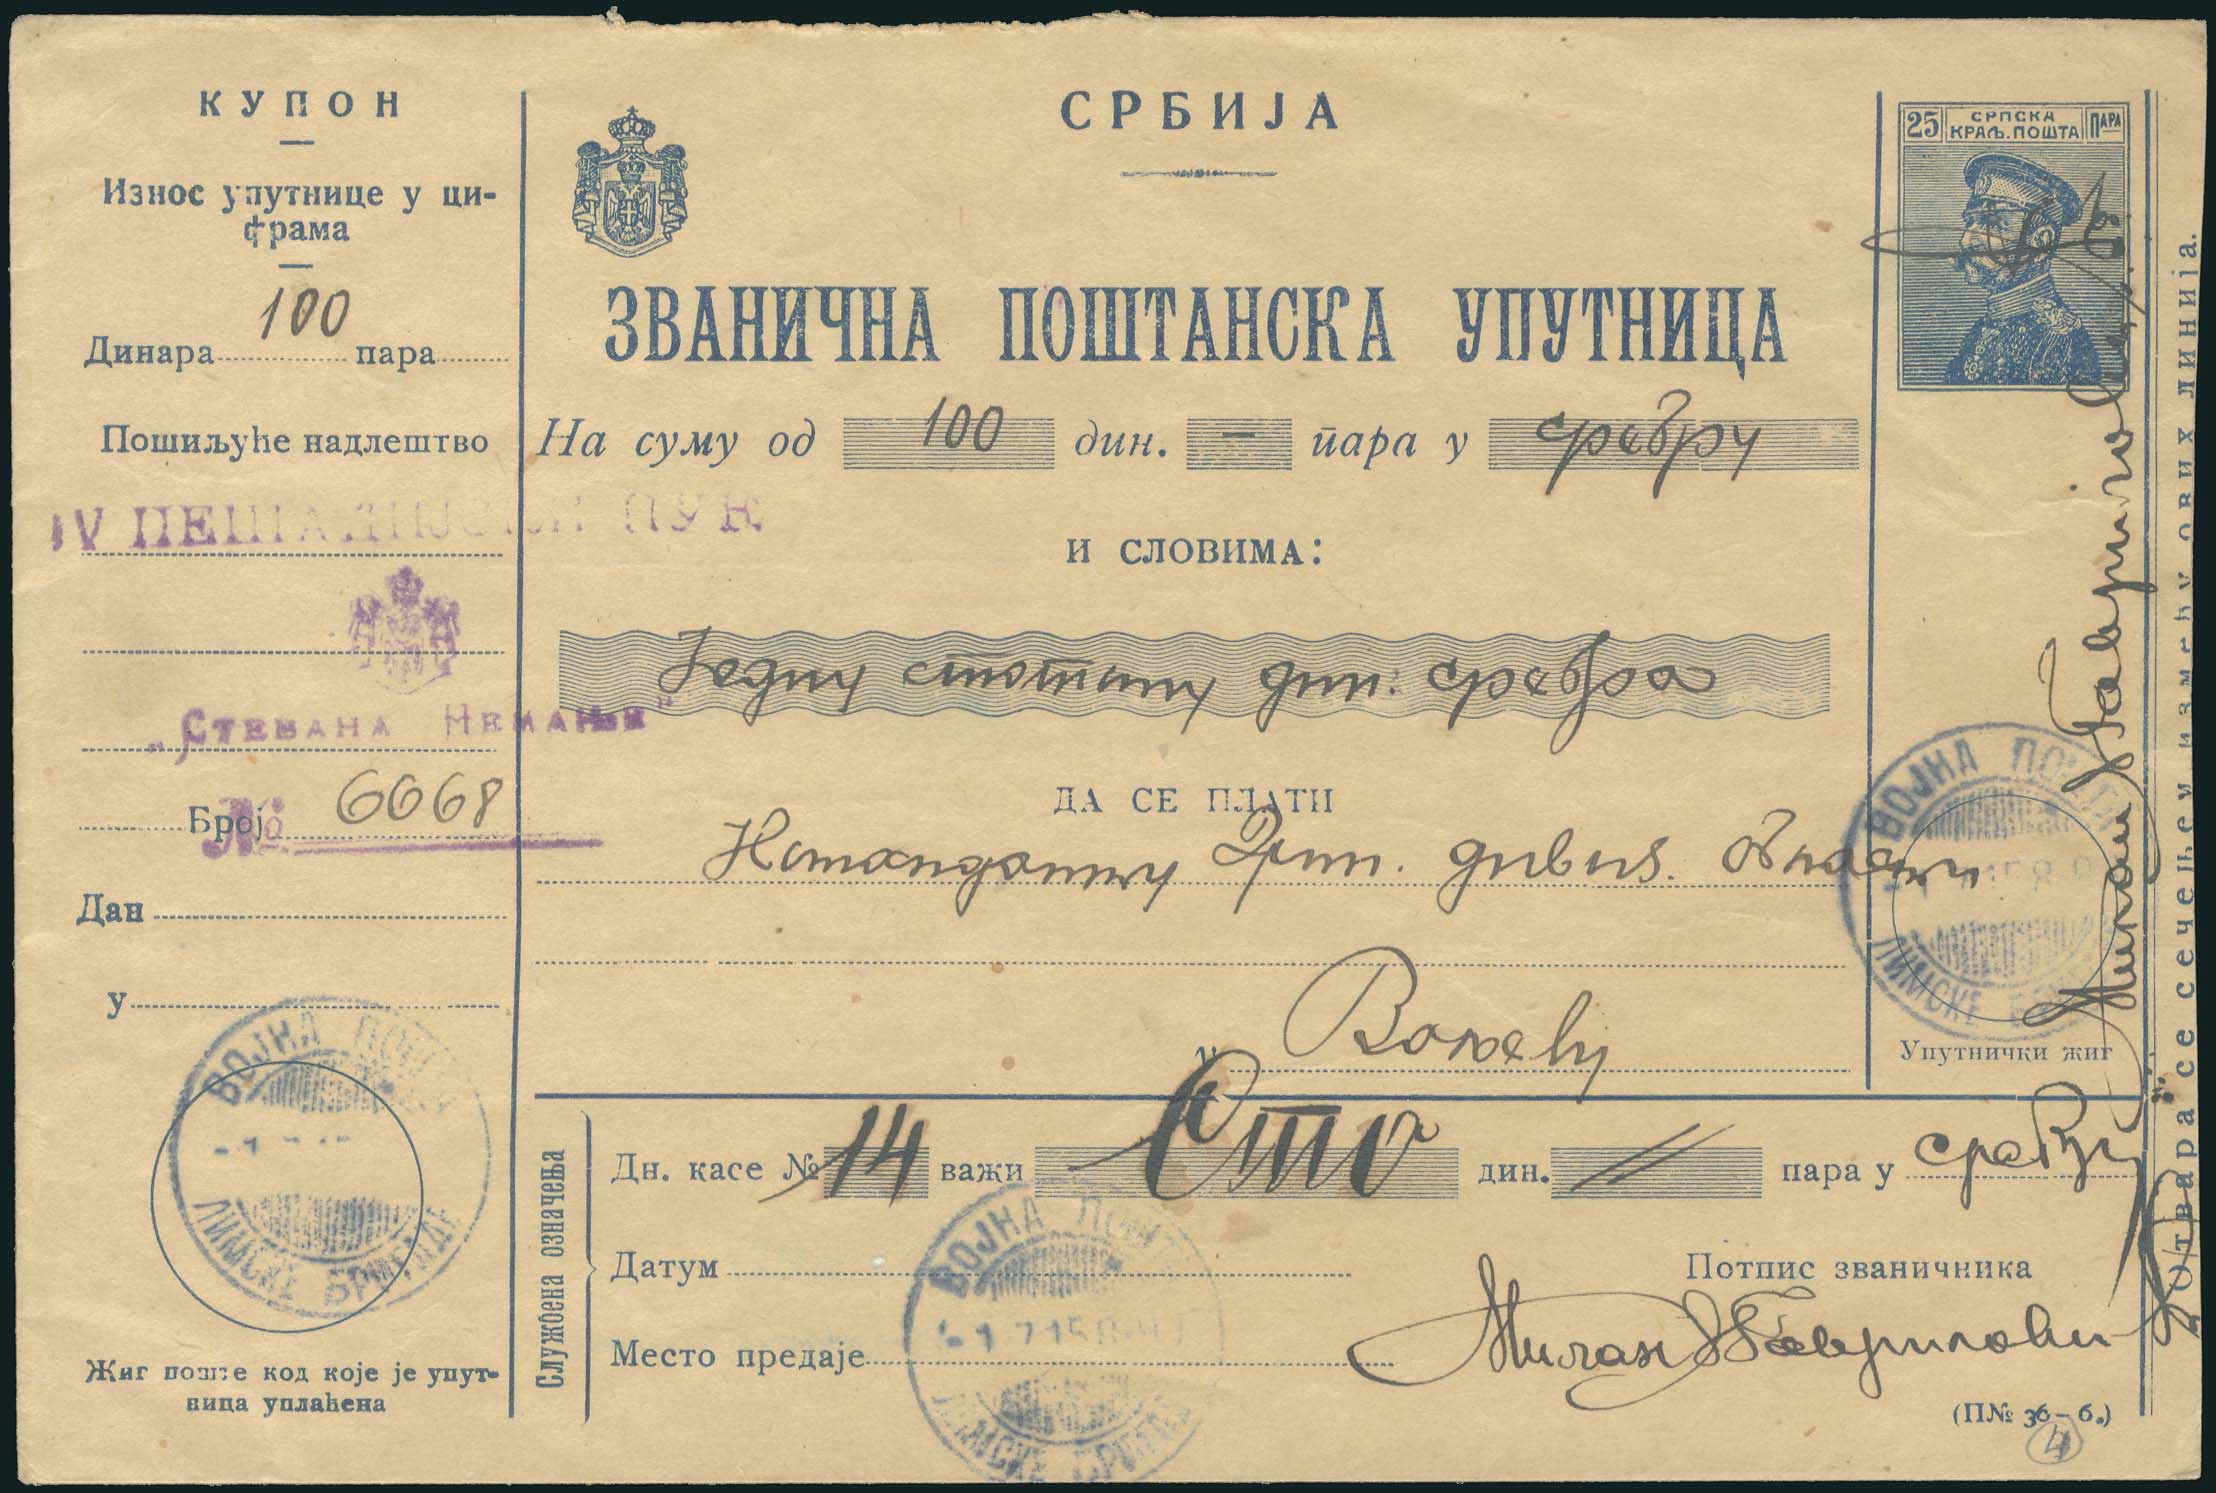 КУПОН
Износ упутнице у ци-
фрама
Динара 100 пара
Пошиљуће надлештво
IV ПЕШАДИЈСКИ ПУК
„СТЕВАНА НЕМАЊЕ"
Број № 6068
Дан
у
ВОЈНА ПОШТА
ЛИМСКЕ БРИГАДЕ
Жиг поште код које је упут-
ница уплаћена
СРБИЈА
ЗВАНИЧНА ПОШТАНСКА УПУТНИЦА
На суму од 100 дин. – пара у сребру
И СЛОВИМА:
Једну стотину дин. сребра
ДА СЕ ПЛАТИ
Команданту Дрин. дивиз. области
у Ваљеву
Службена означења
Дн. касе № 14 важи Сто дин. // пара у сребру
Датум
Место предаје
ВОЈНА ПОШТА
1 7 15
ЛИМСКЕ БРИГАДЕ
Потпис званичника
Милан Гавриловић
(П№ 36–6.)
4
25 СРПСКА ПАРА
КРАЉ. ПОШТА
ВОЈНА ПОШТА
ЛИМСКЕ
Упутнички жиг
Милан Гавриловић
Отвара се сечењем између ових линија.